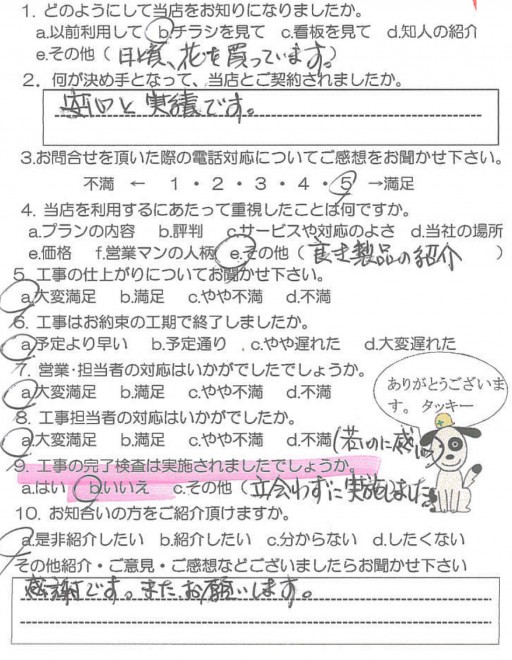 1. どのようにして当店をお知りになりましたか。
a.以前利用して b.チラシを見て c.看板を見て d.知人の紹介
e.その他（日頃、花を買っています。）
2. 何が決め手となって、当店とご契約されましたか。
安心と実績です。
3.お問合せを頂いた際の電話対応についてご感想をお聞かせ下さい。
不満 ← 1・2・3・4・5 →満足
4. 当店を利用するにあたって重視したことは何ですか。
a.プランの内容 b.評判 c.サービスや対応のよさ d.当社の場所
e.価格 f.営業マンの人柄 e.その他（良き製品の紹介 ）
5. 工事の仕上がりについてお聞かせ下さい。
a.大変満足 b.満足 c.やや不満 d.不満
6. 工事はお約束の工期で終了しましたか。
a.予定より早い b.予定通り c.やや遅れた d.大変遅れた
7. 営業・担当者の対応はいかがでしたでしょうか。
a.大変満足 b.満足 c.やや不満 d.不満
ありがとうございま
す。 タッキー
8. 工事担当者の対応はいかがでしたか。
a.大変満足 b.満足 c.やや不満 d.不満(若いのに感心)
9. 工事の完了検査は実施されましたでしょうか。
a.はい b.いいえ c.その他（立会わずに実施しました
10. お知合いの方をご紹介頂けますか。
a.是非紹介したい b.紹介したい c.分からない d.したくない
その他紹介・ご意見・ご感想などございましたらお聞かせ下さい
感謝です。また、お願いします。